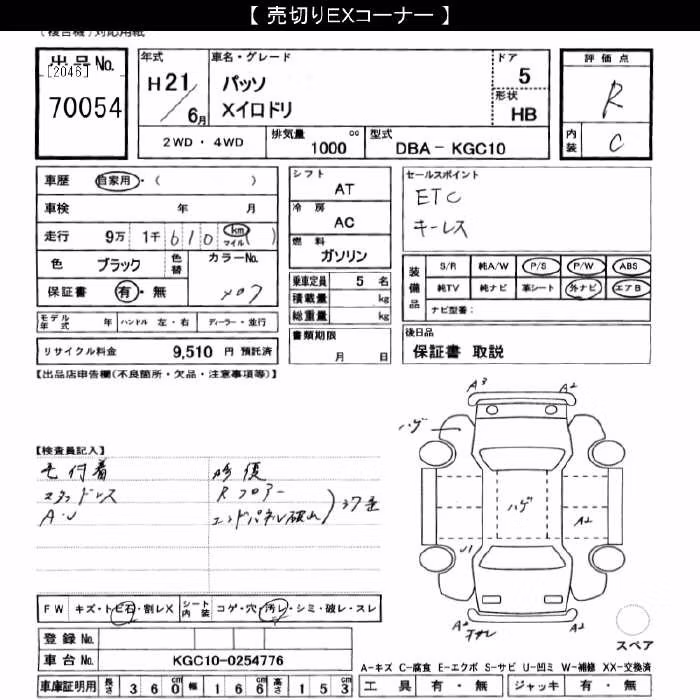 【 売切りEXコーナー 】
対応用紙
出品No.
[2046]
70054
年式
H21
6月
車名・グレード
パッソ
Xイロドリ
ドア
5
形状
HB
2WD・4WD
排気量
1000 cc
型式
DBA－KGC10
評価点
R
内装
C
車歴 自家用・( )
車検 年 月
走行 9万 1千 610 km マイル ( )
色 ブラック 色替 カラーNo.
保証書 有・無
モデル年式 年 ハンドル 左・右 ディーラー・並行
リサイクル料金 9,510 円 預託済
シフト
AT
冷房
AC
燃料
ガソリン
乗車定員 5 名
積載量 kg
総重量 kg
書類期限
月 日
セールスポイント
ETC
キーレス
装備品
S/R 純A/W P/S P/W ABS
純TV 純ナビ 革シート 外ナビ エアB
ナビ型番：
後日品
保証書 取説
【出品店申告欄(不良箇所・欠品・注意事項等)】
【検査員記入】
毛付着
スタッドレス
修復
Rフロアー
ハゲ
A3
A2
ハゲ
A2
U1
A2
A2
FW キズ・トビ石・割レX シート内装 コゲ・穴・汚レ・シミ・破レ・スレ
登録No.
車台No. KGC10-0254776
車庫証明用 長さ 360 cm 幅 166 cm 高さ 153 cm
スペア
A－キズ C－腐食 E－エクボ S－サビ U－凹ミ W－補修 XX－交換済
工具 有・無 ジャッキ 有・無